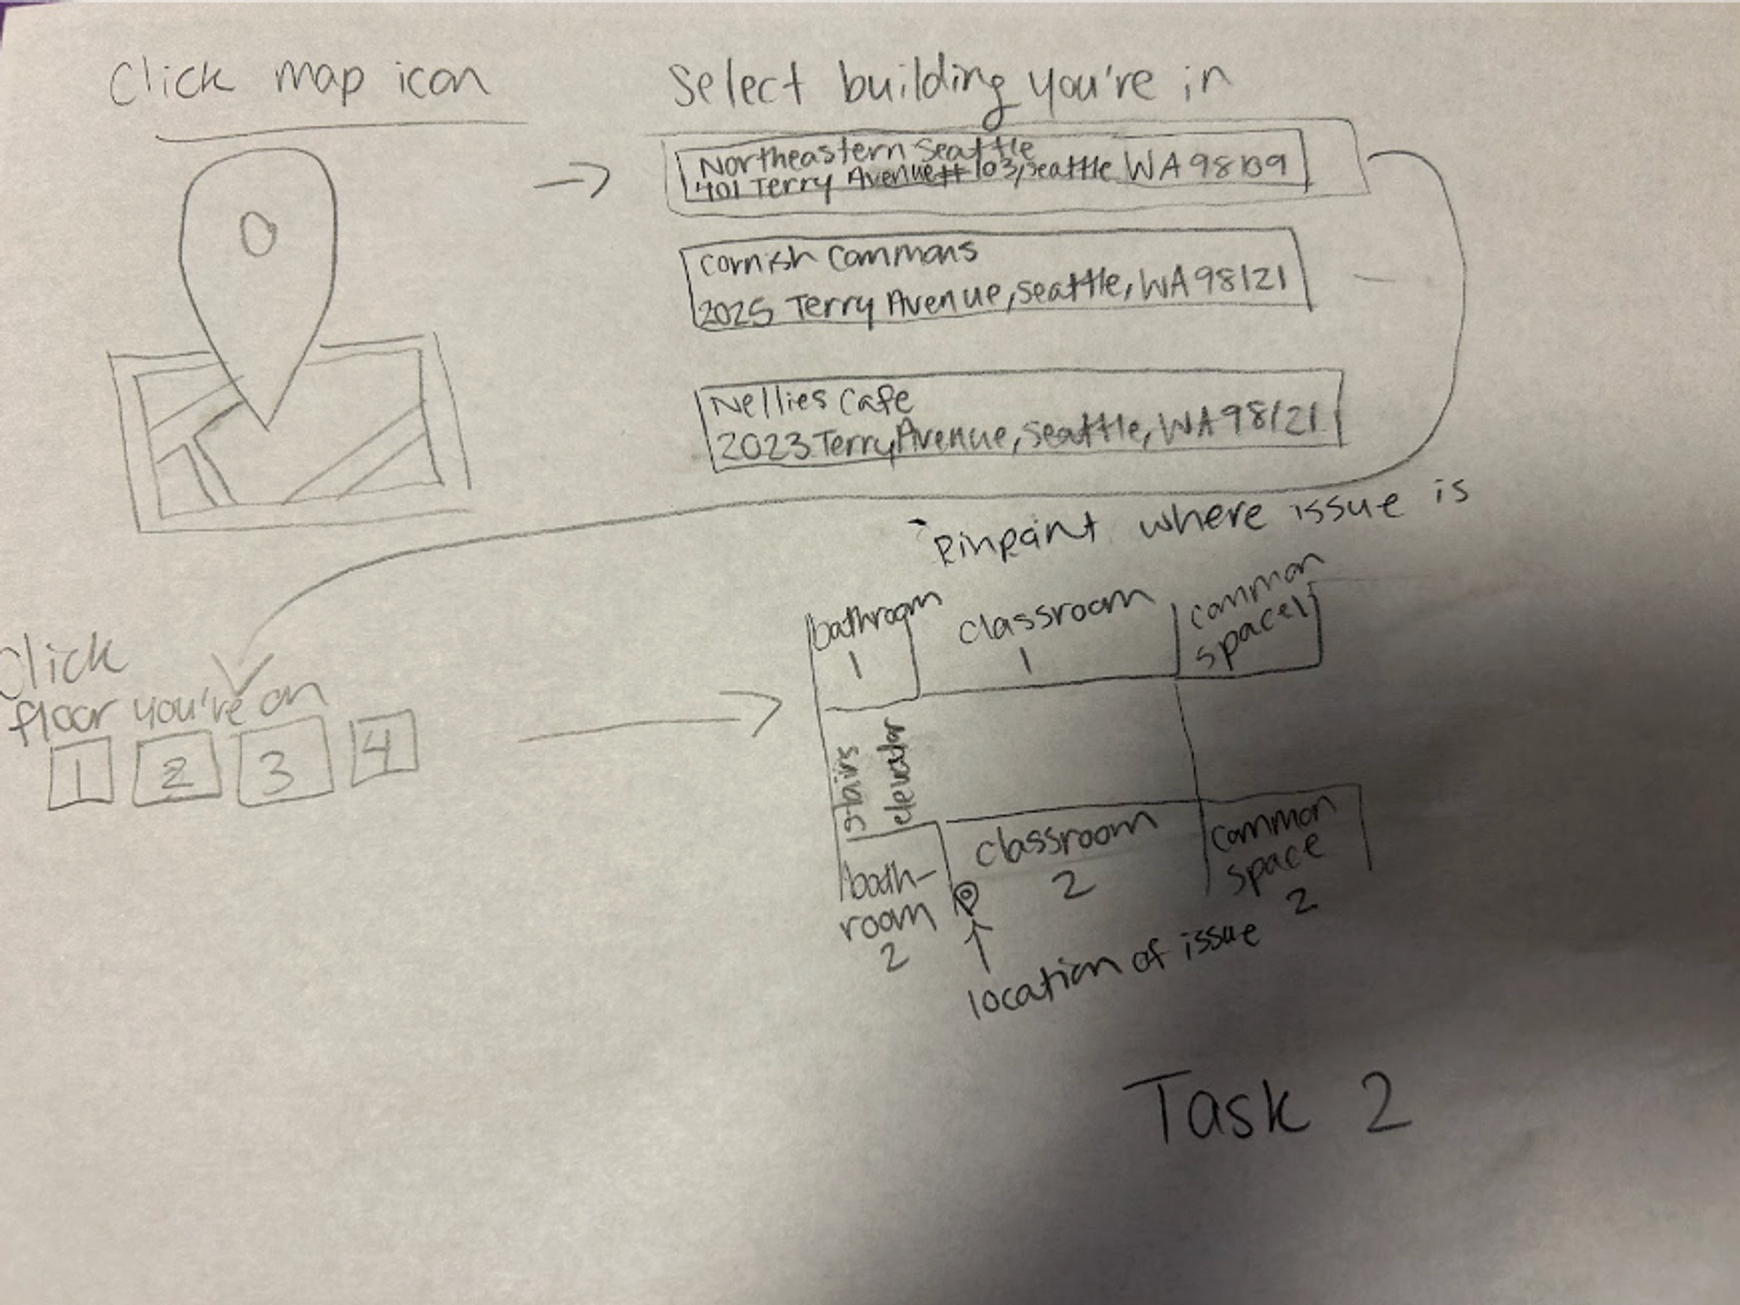 Click map icon
Select building you're in
Northeastern Seattle
401 Terry Avenue #103, Seattle WA 98109
Cornish Commons
2025 Terry Avenue, Seattle, WA 98121
Nellies Cafe
2023 Terry Avenue, Seattle, WA 98121
Click
floor you're on
1 2 3 4
Pinpoint where issue is
bathroom
1
classroom
1
common
space 1
stairs
elevator
bath-
room
2
classroom
2
common
space
2
location of issue
Task 2